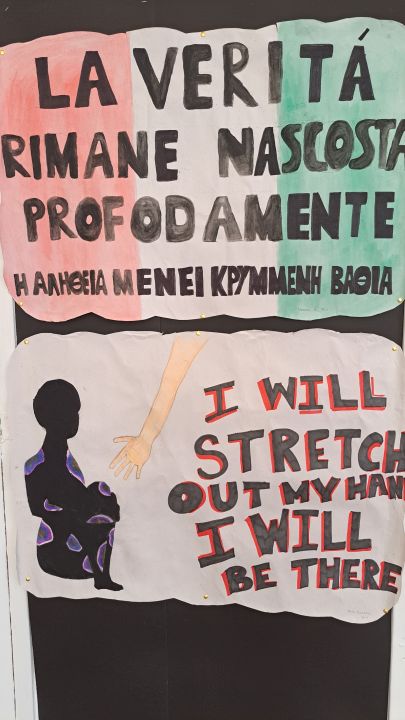 LA VERITÁ
RIMANE NASCOSTA
PROFODAMENTE
Η ΑΛΗΘΕΙΑ ΜΕΝΕΙ ΚΡΥΜΜΕΝΗ ΒΑΘΙΑ
I WILL
STRETCH
OUT MY HAN
I WILL
BE THERE